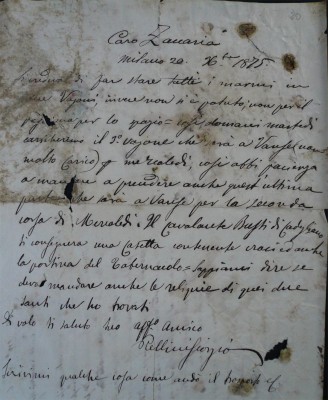 Caro Zavaria
Milano 20 Xbre 1875
di far stare tutti i marmi in
due Vagoni, invece non si è potuto; non per il
per lo spazio = così domani martedì
il 3º vagone che va a Varese, non
molto carico, mercoledì, così abbi pazienza
a mandare a prendere anche quest'ultima
che sarà a Varese per la seconda
corsa di Mercoledì. Il Cavalcante
ti consegnerà una Casetta contenente croci ed anche
la portina del Tabernacolo = Sappiami dire se
devo mandare anche le reliquie di quei due
Santi che ho trovati
Di volo ti saluto tuo affº Amico
Pellini Giorgio
Scrivimi qualche cosa come andò il trasporto